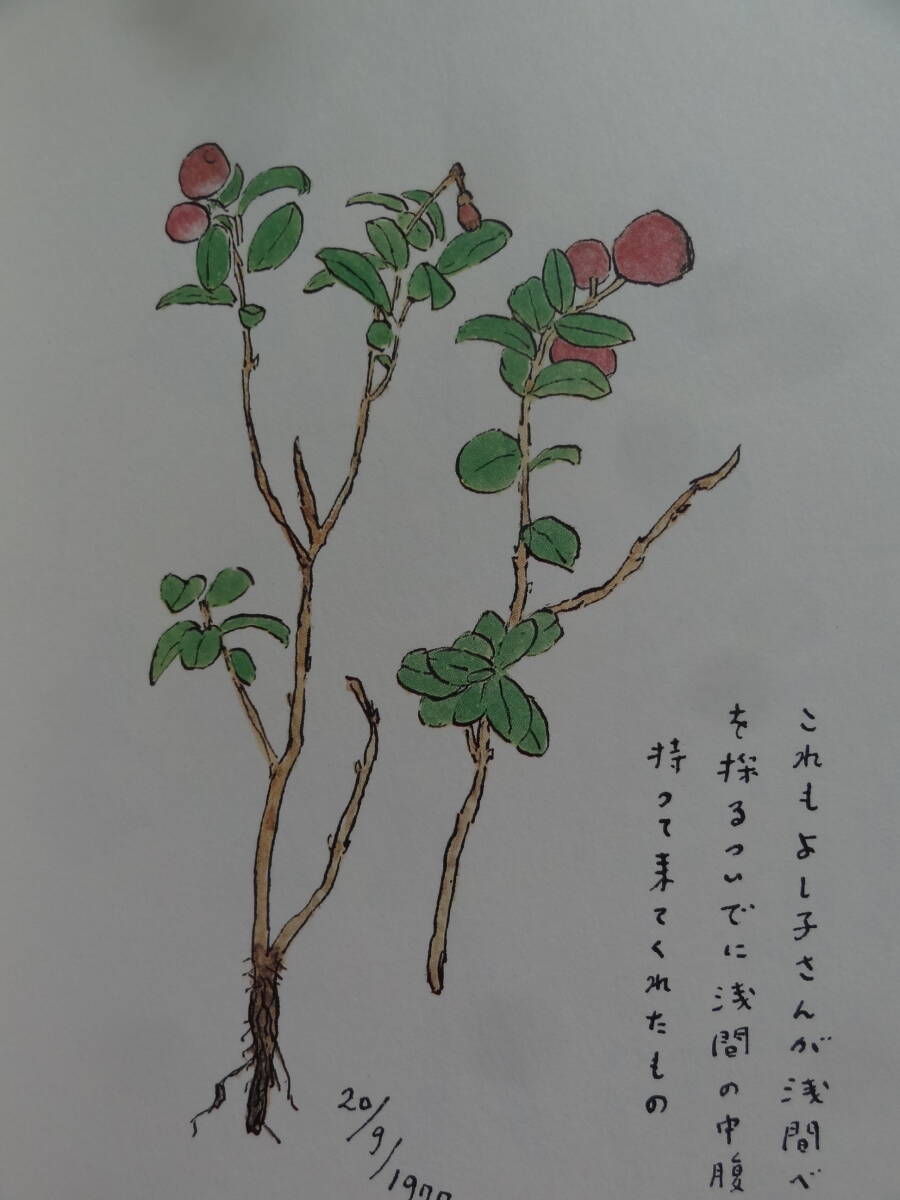 これもよし子さんが浅間べ
を採るついでに浅間の中腹
持って来てくれたもの
20/9/1977